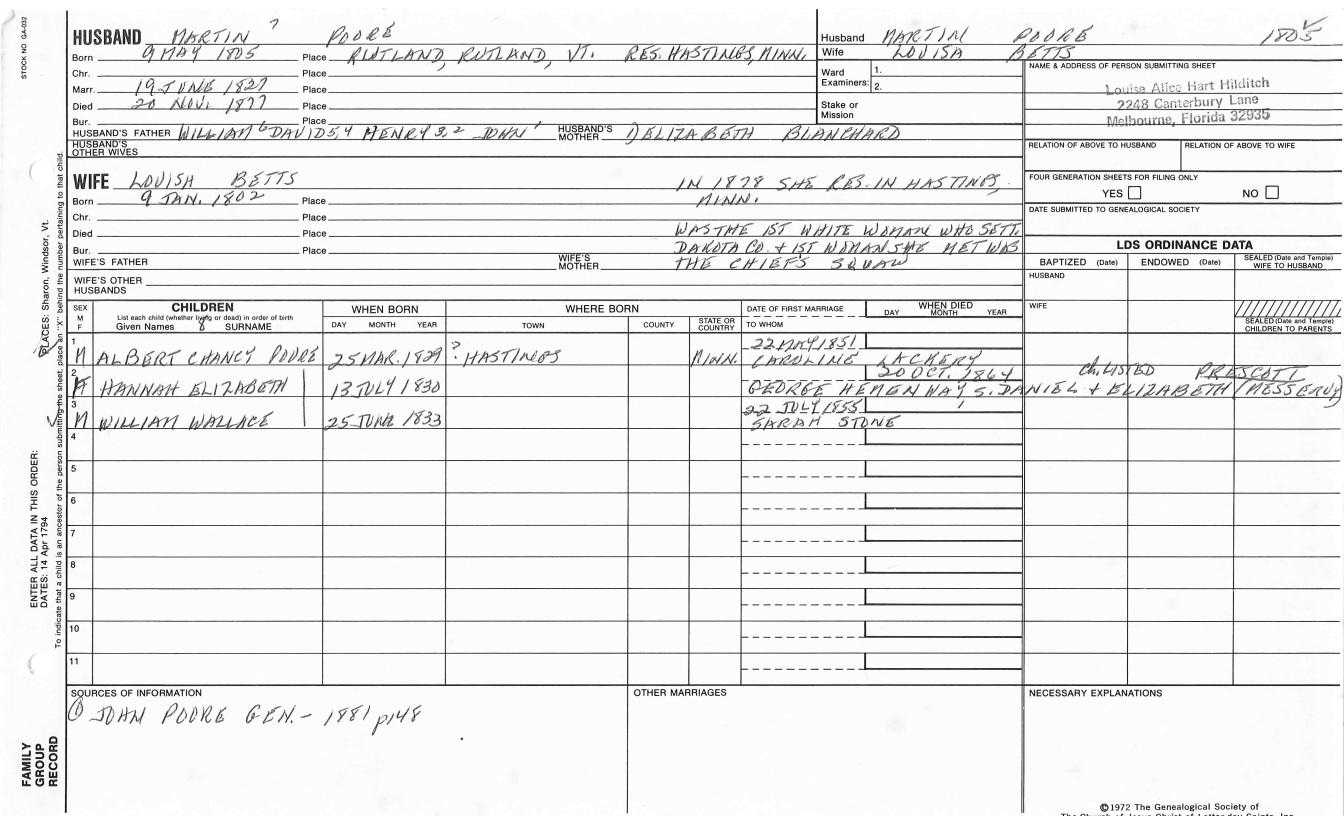 STOCK NO. GA-032
HUSBAND MARTIN ? POORE
Born 9 MAY 1805 Place RUTLAND, RUTLAND, VT. RES. HASTINGS, MINN.
Chr. Place
Marr. 19 JUNE 1827 Place
Died 20 NOV. 1877 Place
Bur. Place
HUSBAND'S FATHER WILLIAM 6 DAVID 5,4 HENRY 3,2 JOHN 1 HUSBAND'S MOTHER 1) ELIZABETH BLANCHARD
HUSBAND'S OTHER WIVES
WIFE LOUISA BETTS
Born 9 JAN. 1802 Place
Chr. Place
Died Place
Bur. Place
IN 1878 SHE RES. IN HASTINGS,
MINN.
WAS THE 1ST WHITE WOMAN WHO SETT.
DAKOTA CO. + 1ST WOMAN SHE MET WAS
THE CHIEF'S SQUAW
WIFE'S FATHER WIFE'S MOTHER
WIFE'S OTHER HUSBANDS
Husband MARTIN POORE 1805
Wife LOUISA BETTS
Ward Examiners: 1. 2.
Stake or Mission
NAME & ADDRESS OF PERSON SUBMITTING SHEET
Louise Alice Hart Hilditch
2248 Canterbury Lane
Melbourne, Florida 32935
RELATION OF ABOVE TO HUSBAND RELATION OF ABOVE TO WIFE
FOUR GENERATION SHEETS FOR FILING ONLY
YES NO
DATE SUBMITTED TO GENEALOGICAL SOCIETY
LDS ORDINANCE DATA
BAPTIZED (Date) ENDOWED (Date) SEALED (Date and Temple) WIFE TO HUSBAND
HUSBAND
WIFE
SEALED (Date and Temple) CHILDREN TO PARENTS
SEX M F
CHILDREN
List each child (whether living or dead) in order of birth
Given Names SURNAME
WHEN BORN
DAY MONTH YEAR
WHERE BORN
TOWN COUNTY STATE OR COUNTRY
DATE OF FIRST MARRIAGE
TO WHOM
WHEN DIED
DAY MONTH YEAR
1 22 MAY 1851
M ALBERT CHANCY POORE 25 MAR. 1829 ? HASTINGS MINN. CAROLINE LACKERY
2 20 OCT. 1864 Ch. LISTED PRESCOTT
F HANNAH ELIZABETH 13 JULY 1830 GEORGE HEMENWAY S. DANIEL + ELIZABETH (MESSERVY)
3 22 JULY 1855
M WILLIAM WALLACE 25 JUNE 1833 SARAH STONE
4
5
6
7
8
9
10
11
SOURCES OF INFORMATION
① JOHN POORE GEN. - 1881 p148
OTHER MARRIAGES
NECESSARY EXPLANATIONS
©1972 The Genealogical Society of
The Church of Jesus Christ of Latterday Saints, Inc.
PLACES: Sharon, Windsor, Vt.
ENTER ALL DATA IN THIS ORDER:
DATES: 14 Apr 1794
To indicate that a child is an ancestor of the person submitting the sheet, place an "X" behind the number pertaining to that child.
FAMILY
GROUP
RECORD